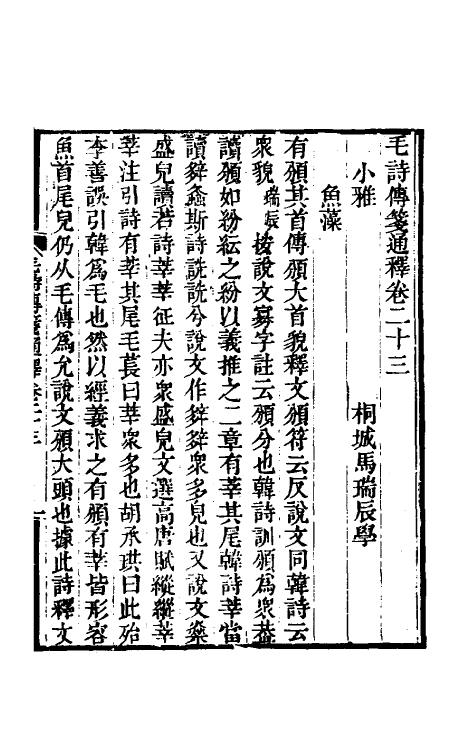 毛詩傳箋通釋卷二十三
桐城馬瑞辰學
小雅
魚藻
有頒其首傳頒大首貌釋文頒符云反說文同韓詩云
衆貌瑞辰按說文寡字註云頒分也韓詩訓頒爲衆葢
讀頒如紛紜之紛以義推之二章有莘其尾韓詩莘當
讀辬螽斯詩詵詵兮說文作辬辬衆多皃也又說文燊
盛皃讀若詩莘莘征夫亦衆盛皃文選高唐賦縱縱莘
莘注引詩有莘其尾毛萇曰莘衆多也胡承珙曰此殆
李善誤引韓爲毛也然以經義求之有頒有莘皆形容
魚首尾皃仍从毛傳爲允說文頒大頭也據此詩釋文
毛詩傳箋通釋卷二十三
一